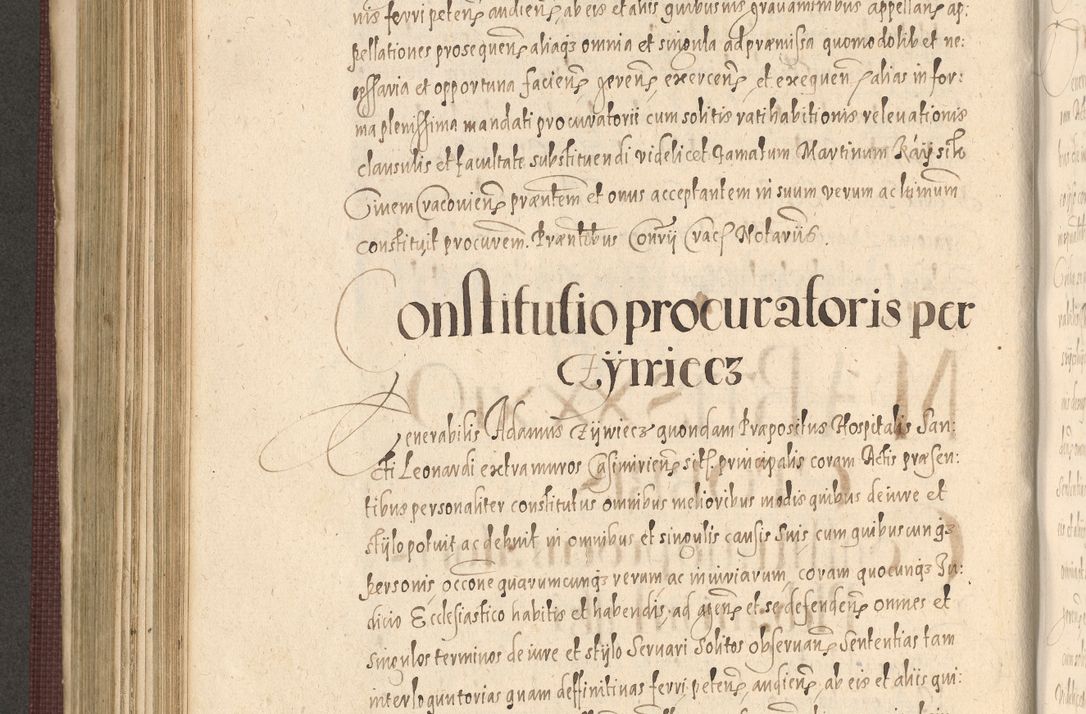 nis ferri petenꝫ audienꝫ ab eis et aliis quibusuis gravaminibus appellanꝫ ap:
pellationes prosequenꝫ aliaqȝ omnia et singula ad præmissa quomodolibet ne:
cessaria et opportuna facienꝫ gerenꝫ exercenꝫ et exequenꝫ alias in for:
ma plenissima mandati procuratorii cum solitis ratihabitionis relevationis
clausulis et facultate substituendi videlicet Famatum Martinum
Civem Cracovienꝫ præntem et onus acceptantem in suum verum ac ltimum
constituit procurem. Præntibus Consrÿ Cracꝭ Notariis.
Constitutio procuratoris per
Zÿwiecz
Venerabilis Adamus Zÿwiecz quondam Præpositus Hospitalis San:
cti Leonardi extra muros Casimirienꝫ sitꝭ. principalis coram Actis præsen:
tibus personaliter constitutus omnibus melioribus modis quibus de iure et
stÿlo potuit ac debuit in omnibus et singulis causis suis cum quibuscunqȝ
personis occone quarumcunqȝ rerum ac iniuriarum coram quocunqȝ Iu:
dicio Ecclesiastico habitis et habendis, ad agenꝫ et se defendenꝫ omnes et
singulos terminos de iure et stÿlo servari solitos observanꝫ Sententias tam
interloquutorias quam deffinitivas ferri petenꝫ, audienꝫ, ab eis et aliis qui: